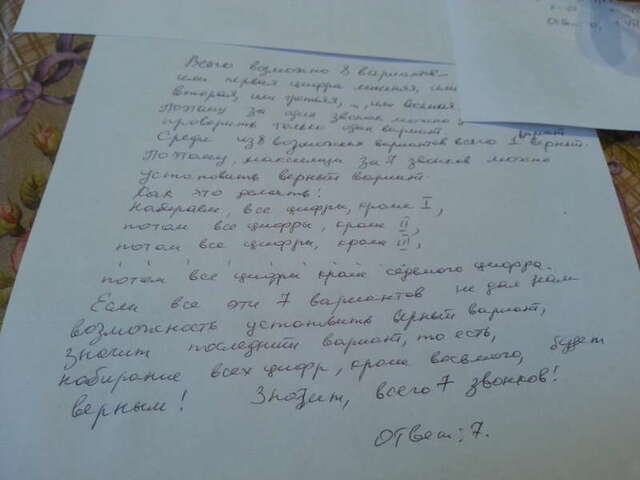 Всего возможно 8 вариантов –
или первая цифра лишняя, или
вторая, или третья, ... или восмая.
Поэтому за один звонок можно
проверить только один вариант.
Среди из 8 возможных вариантов всего 1 верный.
Поэтому, максимум за 7 звонков можно
установить верный вариант.
Как это делать?
Набираем, все цифры, кроме I,
потом все цифры, кроме II,
потом все цифры, кроме III,
потом все цифры кроме седьмого цифра.
Если все эти 7 вариантов не дал нам
возможность установить верный вариант,
значит последний вариант, то есть,
набирание всех цифр, кроме восьмого, будет
верным! Значит, всего 7 звонков!
Ответ: 7.